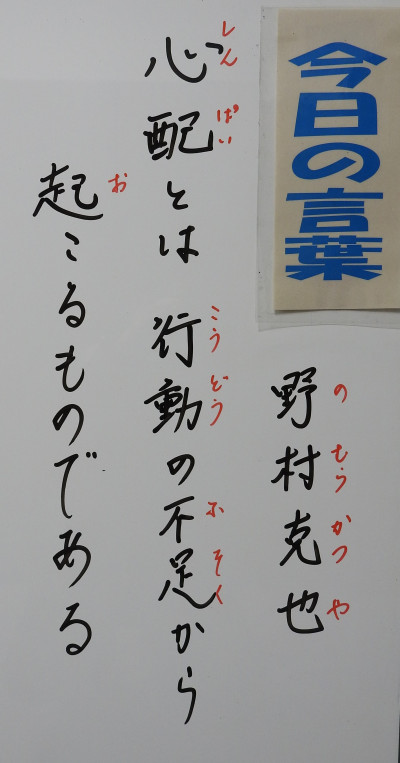 今日の言葉
野村克也
のむらかつや
心配とは 行動の不足から
しんぱい こうどう ふそく
起こるものである
お